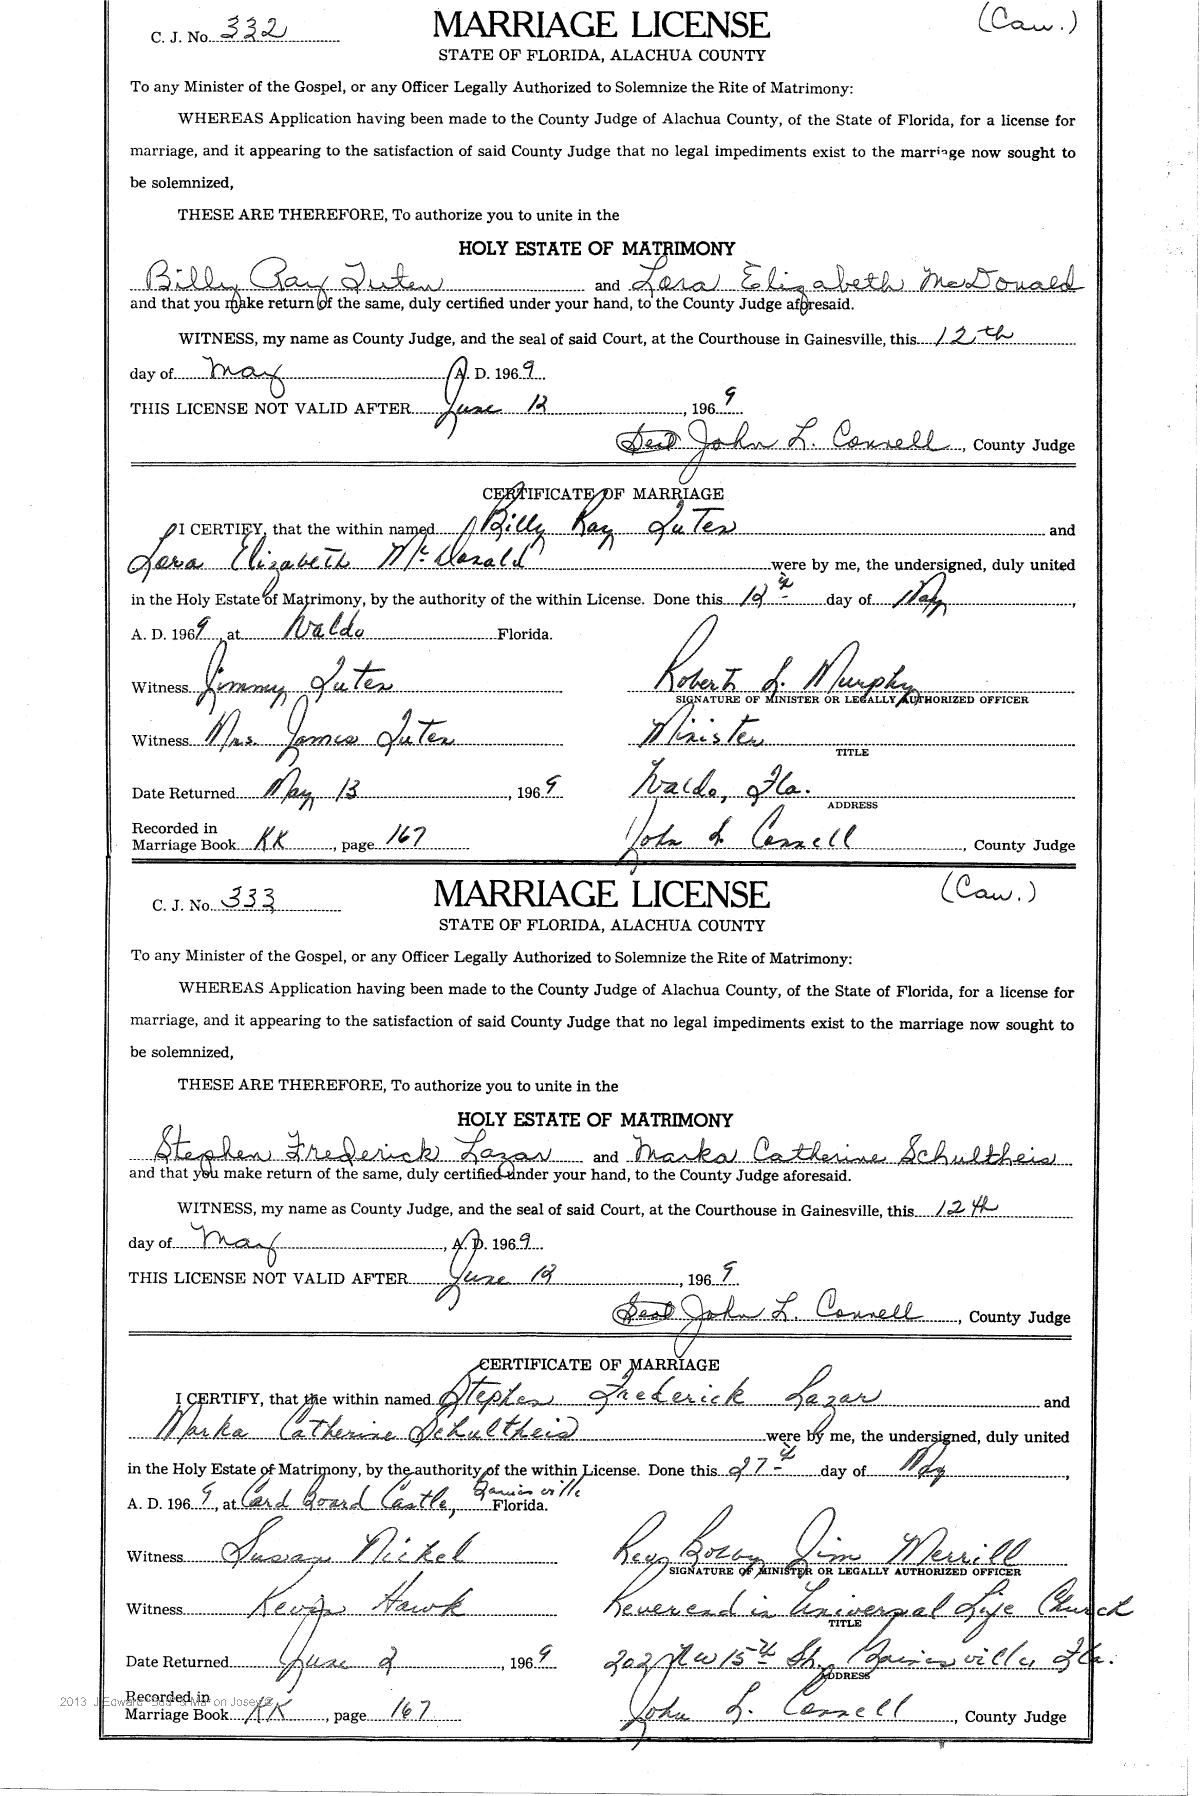 C. J. No. 332 MARRIAGE LICENSE (Cau.)
STATE OF FLORIDA, ALACHUA COUNTY
To any Minister of the Gospel, or any Officer Legally Authorized to Solemnize the Rite of Matrimony:
WHEREAS Application having been made to the County Judge of Alachua County, of the State of Florida, for a license for
marriage, and it appearing to the satisfaction of said County Judge that no legal impediments exist to the marriage now sought to
be solemnized,
THESE ARE THEREFORE, To authorize you to unite in the
HOLY ESTATE OF MATRIMONY
Billy Ray Tuten and Lora Elizabeth McDonald
and that you make return of the same, duly certified under your hand, to the County Judge aforesaid.
WITNESS, my name as County Judge, and the seal of said Court, at the Courthouse in Gainesville, this 12th
day of May A. D. 1969
THIS LICENSE NOT VALID AFTER June 12, 1969
Seal John L. Connell, County Judge
CERTIFICATE OF MARRIAGE
I CERTIFY, that the within named Billy Ray Tuten and
Lora Elizabeth McDonald were by me, the undersigned, duly united
in the Holy Estate of Matrimony, by the authority of the within License. Done this 12th day of May,
A. D. 1969, at Waldo Florida.
Witness Jimmy Tuten Robert L. Murphy
SIGNATURE OF MINISTER OR LEGALLY AUTHORIZED OFFICER
Witness Mrs. James Tuten Minister
TITLE
Date Returned May 13, 1969 Waldo, Fla.
ADDRESS
Recorded in
Marriage Book KK, page 167 John L. Connell, County Judge
C. J. No. 333 MARRIAGE LICENSE (Cau.)
STATE OF FLORIDA, ALACHUA COUNTY
To any Minister of the Gospel, or any Officer Legally Authorized to Solemnize the Rite of Matrimony:
WHEREAS Application having been made to the County Judge of Alachua County, of the State of Florida, for a license for
marriage, and it appearing to the satisfaction of said County Judge that no legal impediments exist to the marriage now sought to
be solemnized,
THESE ARE THEREFORE, To authorize you to unite in the
HOLY ESTATE OF MATRIMONY
Stephen Frederick Lazar and Marka Catherine Schultheis
and that you make return of the same, duly certified under your hand, to the County Judge aforesaid.
WITNESS, my name as County Judge, and the seal of said Court, at the Courthouse in Gainesville, this 12th
day of May, A. D. 1969
THIS LICENSE NOT VALID AFTER June 12, 1969
Seal John L. Connell, County Judge
CERTIFICATE OF MARRIAGE
I CERTIFY, that the within named Stephen Frederick Lazar and
Marka Catherine Schultheis were by me, the undersigned, duly united
in the Holy Estate of Matrimony, by the authority of the within License. Done this 27th day of May,
A. D. 1969, at Card Board Castle, Gainesville Florida.
Witness Susan Nickel Rev. Bobby Jim Merrill
SIGNATURE OF MINISTER OR LEGALLY AUTHORIZED OFFICER
Witness Kevin Hawk Reverend in Universal Life Church
TITLE
Date Returned June 2, 1969 202 NW 15th St. Gainesville, Fla.
ADDRESS
Recorded in
Marriage Book KK, page 167 John L. Connell, County Judge